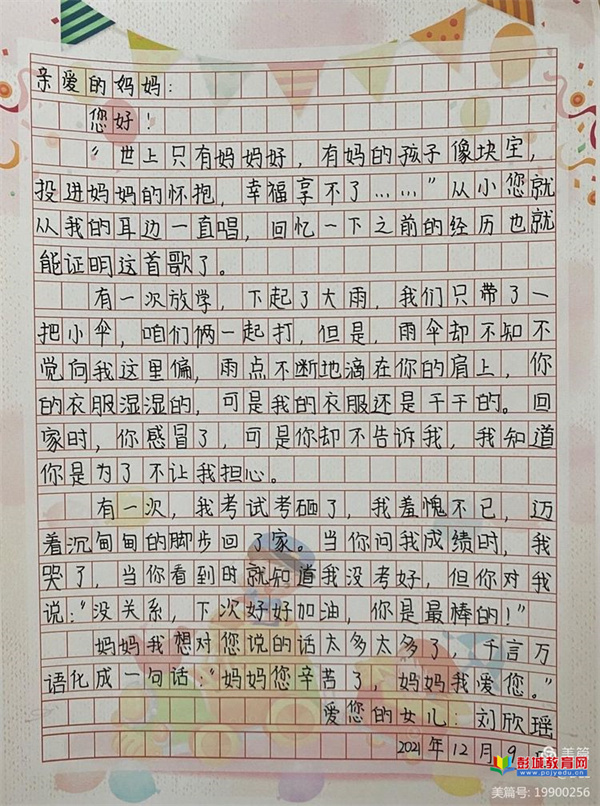 亲爱的妈妈：
您好！
“世上只有妈妈好，有妈的孩子像块宝，
投进妈妈的怀抱，幸福享不了……”从小您就
从我的耳边一直唱，回忆一下之前的经历也就
能证明这首歌了。
有一次放学，下起了大雨，我们只带了一
把小伞，咱们俩一起打，但是，雨伞却不知不
觉向我这里偏，雨点不断地滴在你的肩上，你
的衣服湿湿的，可是我的衣服还是干干的。回
家时，你感冒了，可是你却不告诉我，我知道
你是为了不让我担心。
有一次，我考试考砸了，我羞愧不已，迈
着沉甸甸的脚步回了家。当你问我成绩时，我
哭了，当你看到时就知道我没考好，但你对我
说：“没关系，下次好好加油，你是最棒的！”
妈妈我想对您说的话太多太多了，千言万
语化成一句话：“妈妈您辛苦了，妈妈我爱您。”
爱您的女儿：刘欣瑶
2021年12月9
美篇
彭城教育网
www.pcjyedu.cn
美篇号：19900256